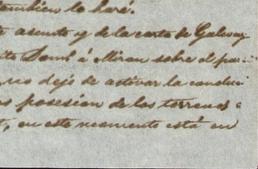 tambien lo haré.
asunto y de la carta de Galway
á Miran sobre el
no dejo de activar la conduc
posesion de los terrenos
, en este momento está en